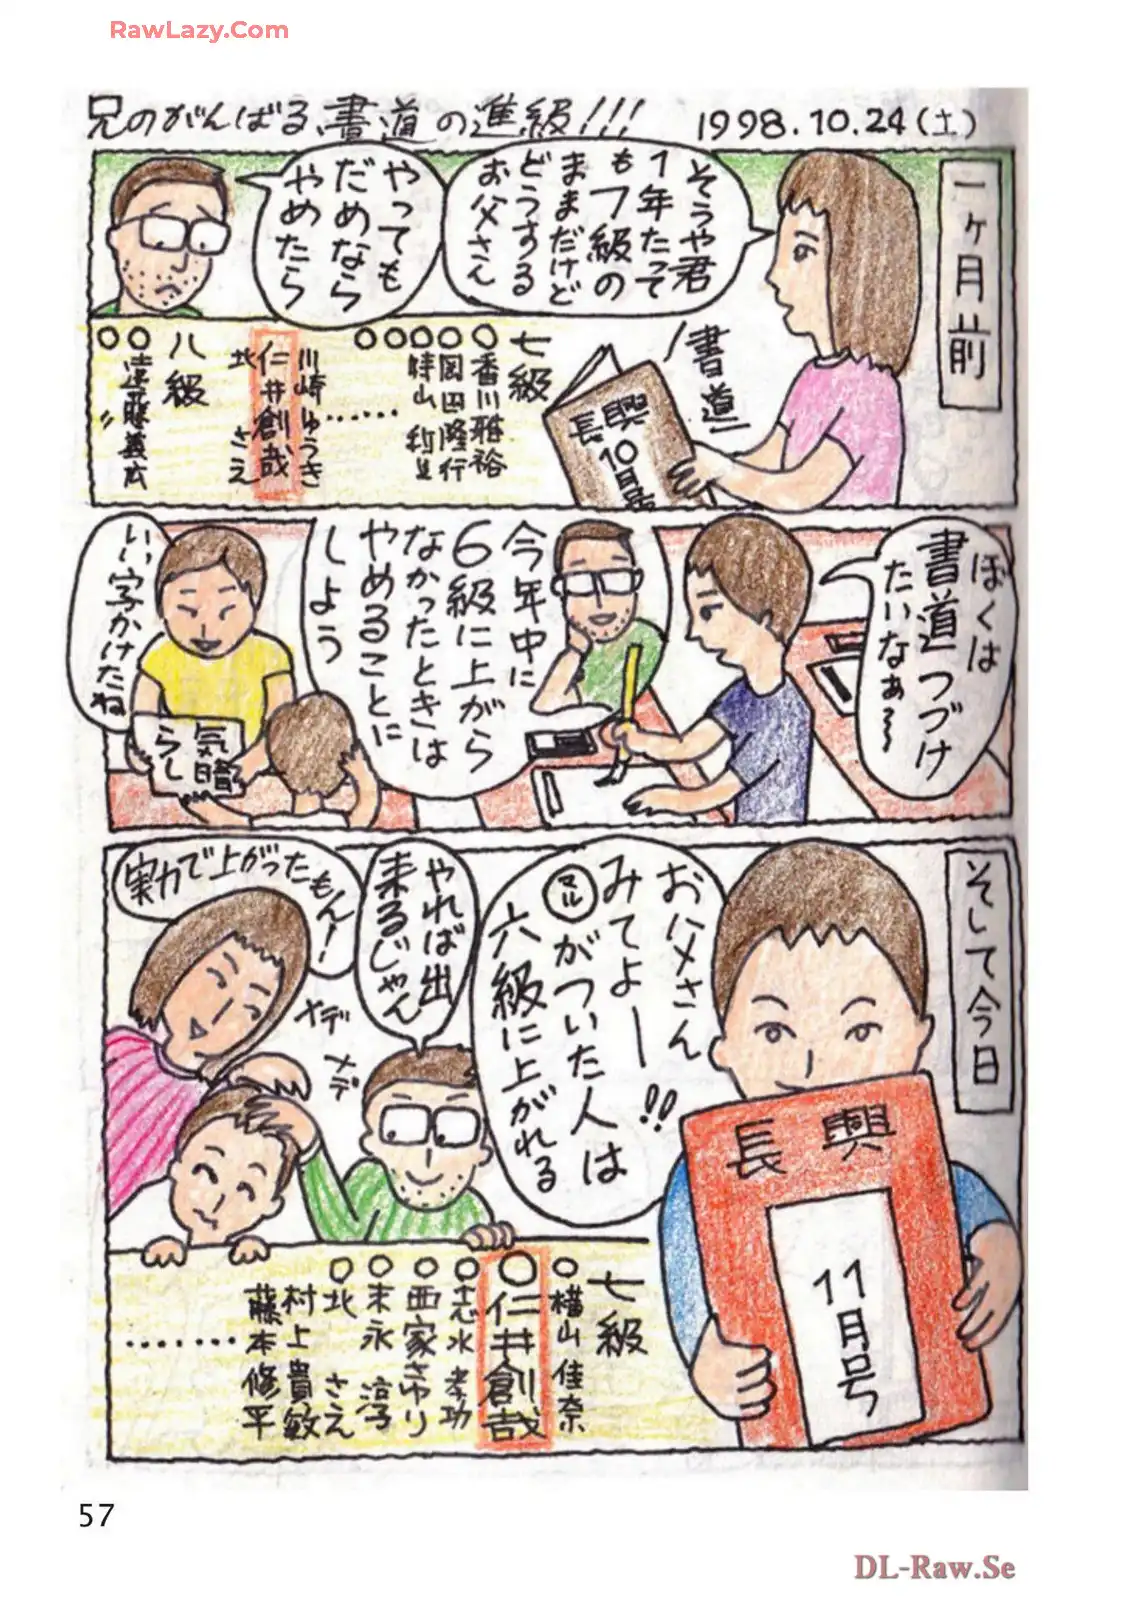 RawLazy.Com
兄のがんばる書道の進級!!!
1998.10.24(土)
一ヶ月前
そうや君
1年たって
も7級の
ままだけど
どうする
お父さん
やっても
だめなら
やめたら
書道
長興
10月号
七級
香川雅裕
岡田隆行
川崎ゆうき
仁井創哉
北 さえ
八級
ぼくは
書道つづけ
たいなぁ〜
今年中に
6級に上がら
なかったときは
やめることに
しよう
いい字かけたね
気晴
らし
そして今日
お父さん
みてよー!!
マル
がついた人は
六級に上がれる
やれば出
来るじゃん
実力で上がったもん!
メデ
メデ
長興
11月号
七級
横山佳奈
仁井創哉
志水孝功
西家さゆり
末永淳子
北 さえ
村上貴敏
藤本修平
57
DL-Raw.Se